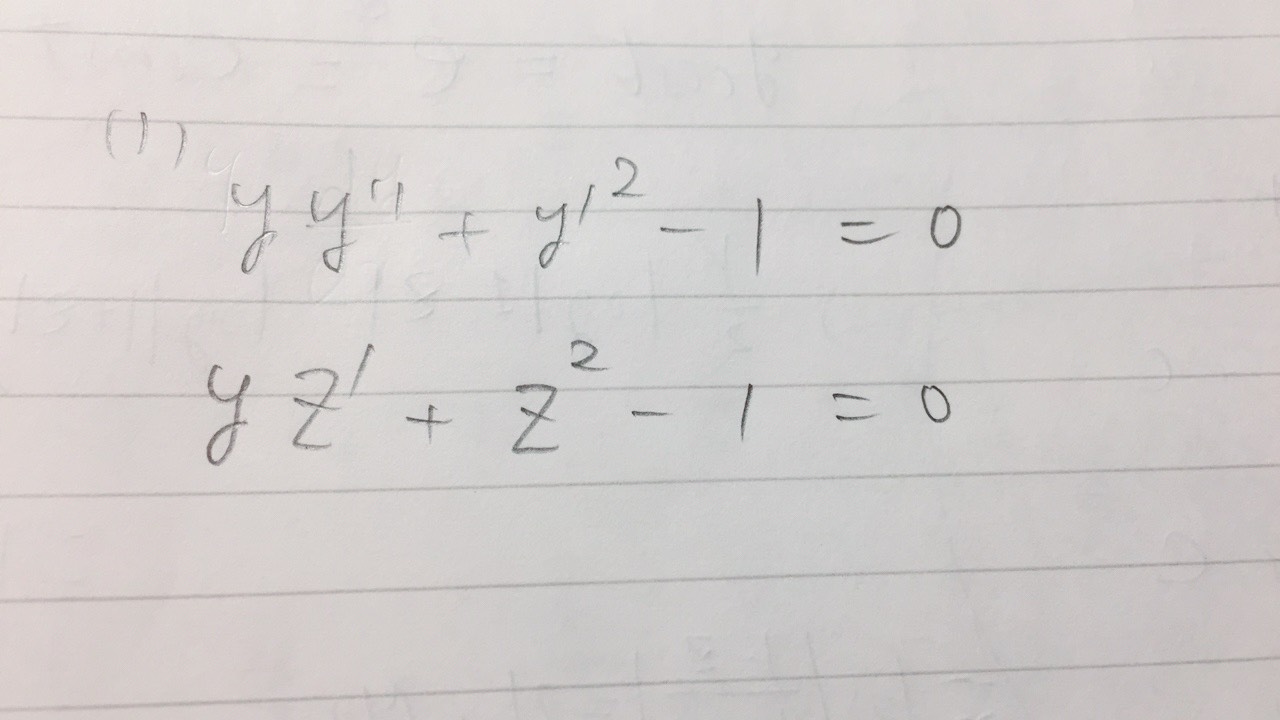 (1)
y y'' + y'² - 1 = 0
y z' + z² - 1 = 0